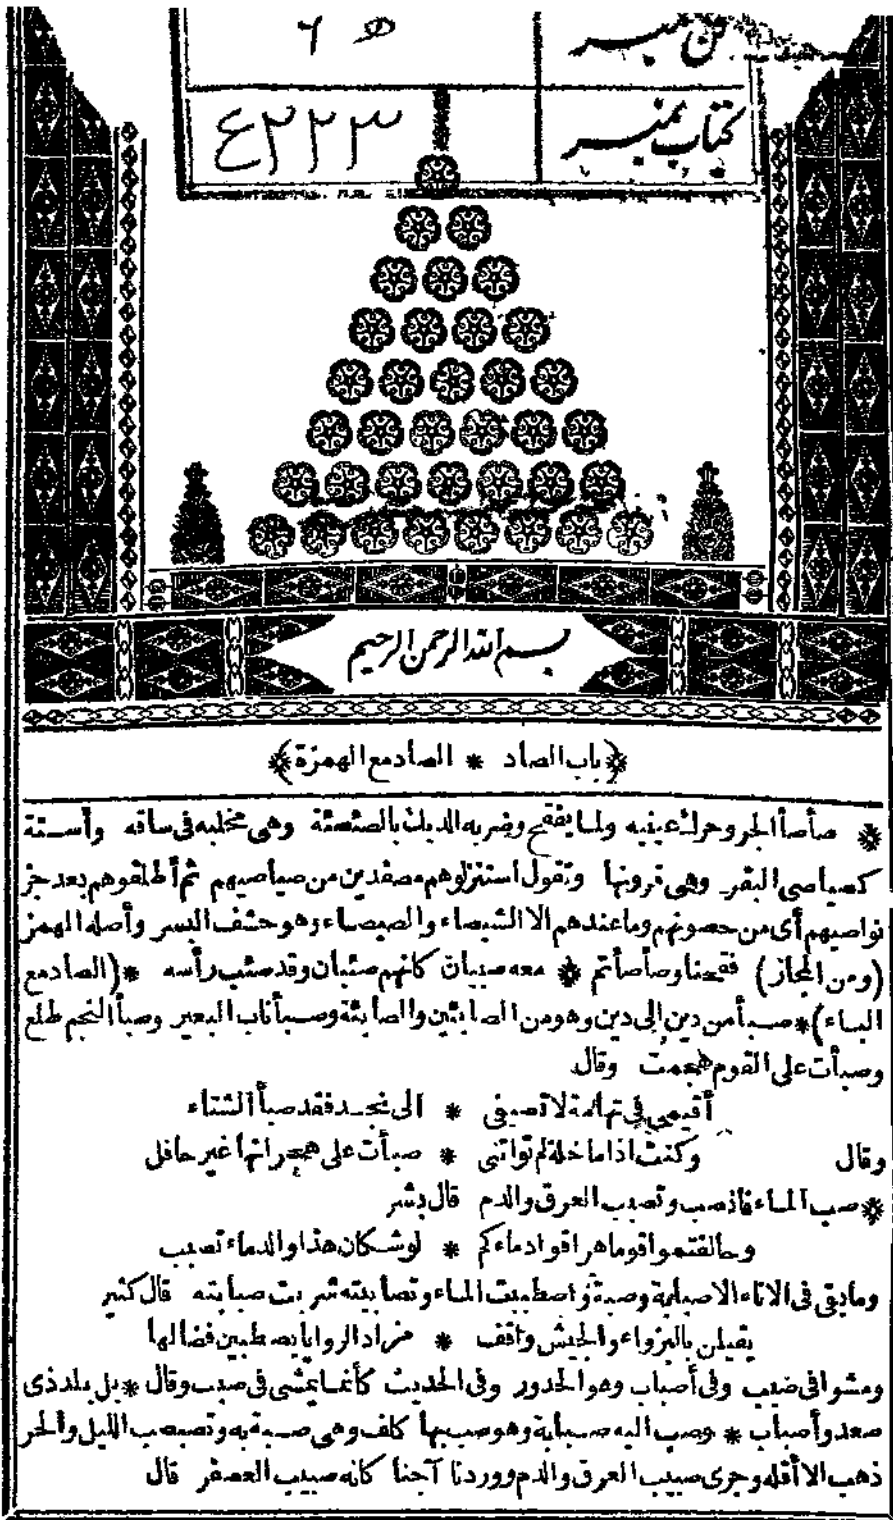 فن نمبر ٦
كتاب نمبر ٤٢٢٣
بسم الله الرحمن الرحيم
﴿باب الصاد * الصاد مع الهمزة﴾
* صأصأ الجرو حرك عينيه ولما يفقح وضربه الديك بالصئصئة وهي مخلبه في ساقه وأسنة
كصياصي البقر وهي قرونها وتقول استنزلوهم مصفدين من صياصيهم ثم أطلقوهم بعد جز
نواصيهم أي من حصونهم وما عندهم الا الشيصاء والصيصاء وهو حشف البسر وأصله الهمز
(ومن المجاز) فقحنا وصأصأتم * معه صبيان كانهم صئبان وقد صئب رأسه *(الصاد مع
الباء)* صبأ من دين الى دين وهو من الصابئين والصابئة وصبأ ناب البعير وصبأ النجم طلع
وصبأت على القوم هجمت وقال
أقيمي في تهامة لا تصيفي * الى نجد فقد صبأ الشتاء
وقال وكنت اذا ما خلة لم تواتني * صبأت على هجرانها غير حافل
* صب الماء فانصب وتصبب العرق والدم قال بشر
وحالفتموا قوما هراقوا دماءكم * لوشكان هذا والدماء تصبب
وما بقي في الاناء الا صبابة وصبة واصطببت الماء وتصاببته شربت صبابته قال كثير
يقبلن بالبزواء والجيش واقف * مزاد الروايا يصطببن فضالها
ومشوا في صبب وفي أصباب وهو الحدور وفي الحديث كأنما يمشي في صبب وقال * بل بلد ذي
صعد وأصباب * وصب اليه صبابة وهو صب بها كلف وهي صبة به وتصبصب الليل والحر
ذهب الا أقله وجرى صبيب العرق والدم ووردنا آجنا كانه صبيب العصفر قال